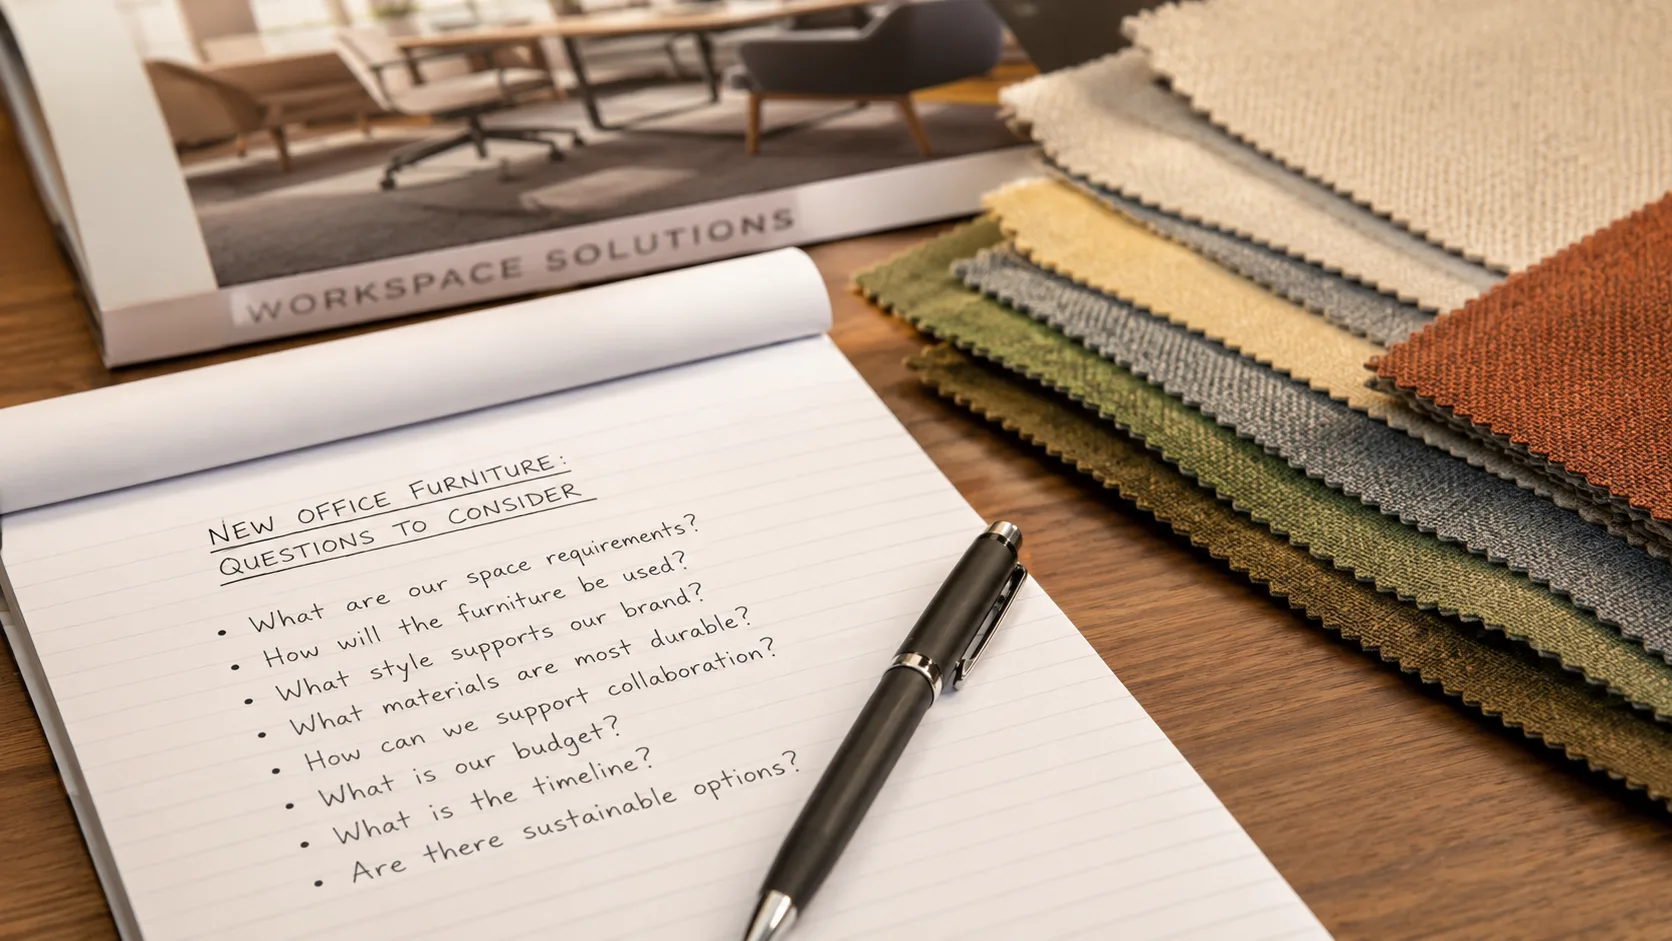 WORKSPACE SOLUTIONS
NEW OFFICE FURNITURE:
QUESTIONS TO CONSIDER
• What are our space requirements?
• How will the furniture be used?
• What style supports our brand?
• What materials are most durable?
• How can we support collaboration?
• What is our budget?
• What is the timeline?
• Are there sustainable options?